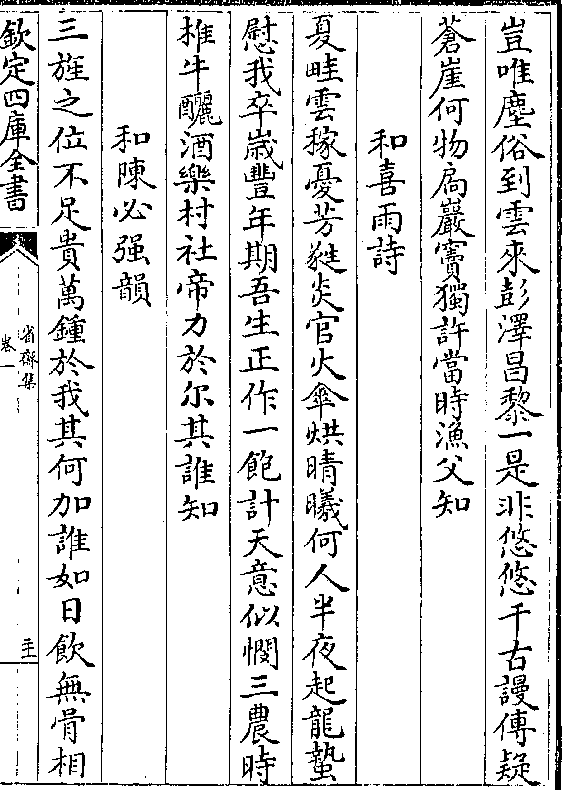 豈唯塵俗到雲來彭澤昌黎一是非悠悠千古謾傳疑
蒼崖何物局巖竇獨許當時漁父知
和喜雨詩
夏畦雲稼憂芳蕤炎官火傘烘晴曦何人半夜起龍蟄
慰我卒嵗豐年期吾生正作一飽計天意似憫三農時
椎牛釃酒樂村社帝力於尔其誰知
和陳必强韻
三旌之位不足貴萬鍾於我其何加誰如日飲無骨相
欽定四庫全書
省齋集
卷一